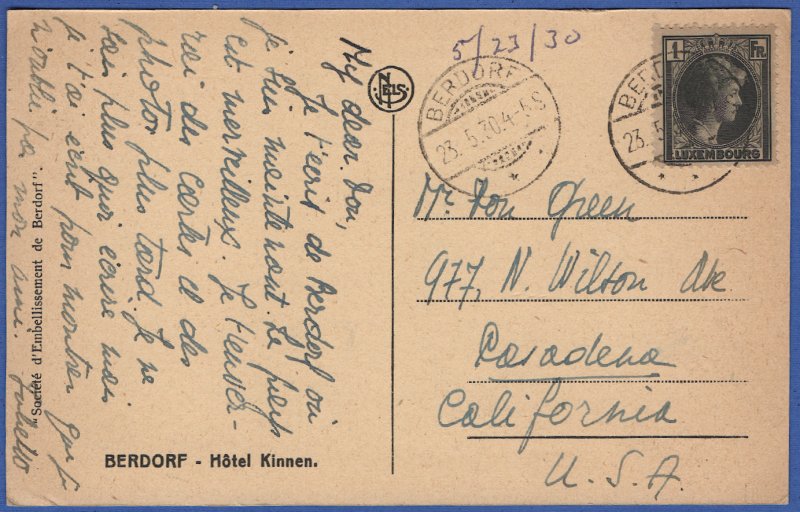 My dear Don,
Je t'écris de Berdorf où
je suis maintenant. Le pays
est merveilleux. Je t'enver-
rai des cartes et des
photos plus tard. Je ne
sais plus quoi écrire mais
je t'ai écrit pour montrer que je
n'oublie pas mon ami.
"Société d'Embellissement de Berdorf".
BERDORF - Hôtel Kinnen.
NELS
5/23/30
BERDORF
23.5.30.4-5S
BERD
23.5
1 FR
LUXEMBOURG
Mr Don Green
977, N. Wilson Ave
Pasadena
California
U.S.A.